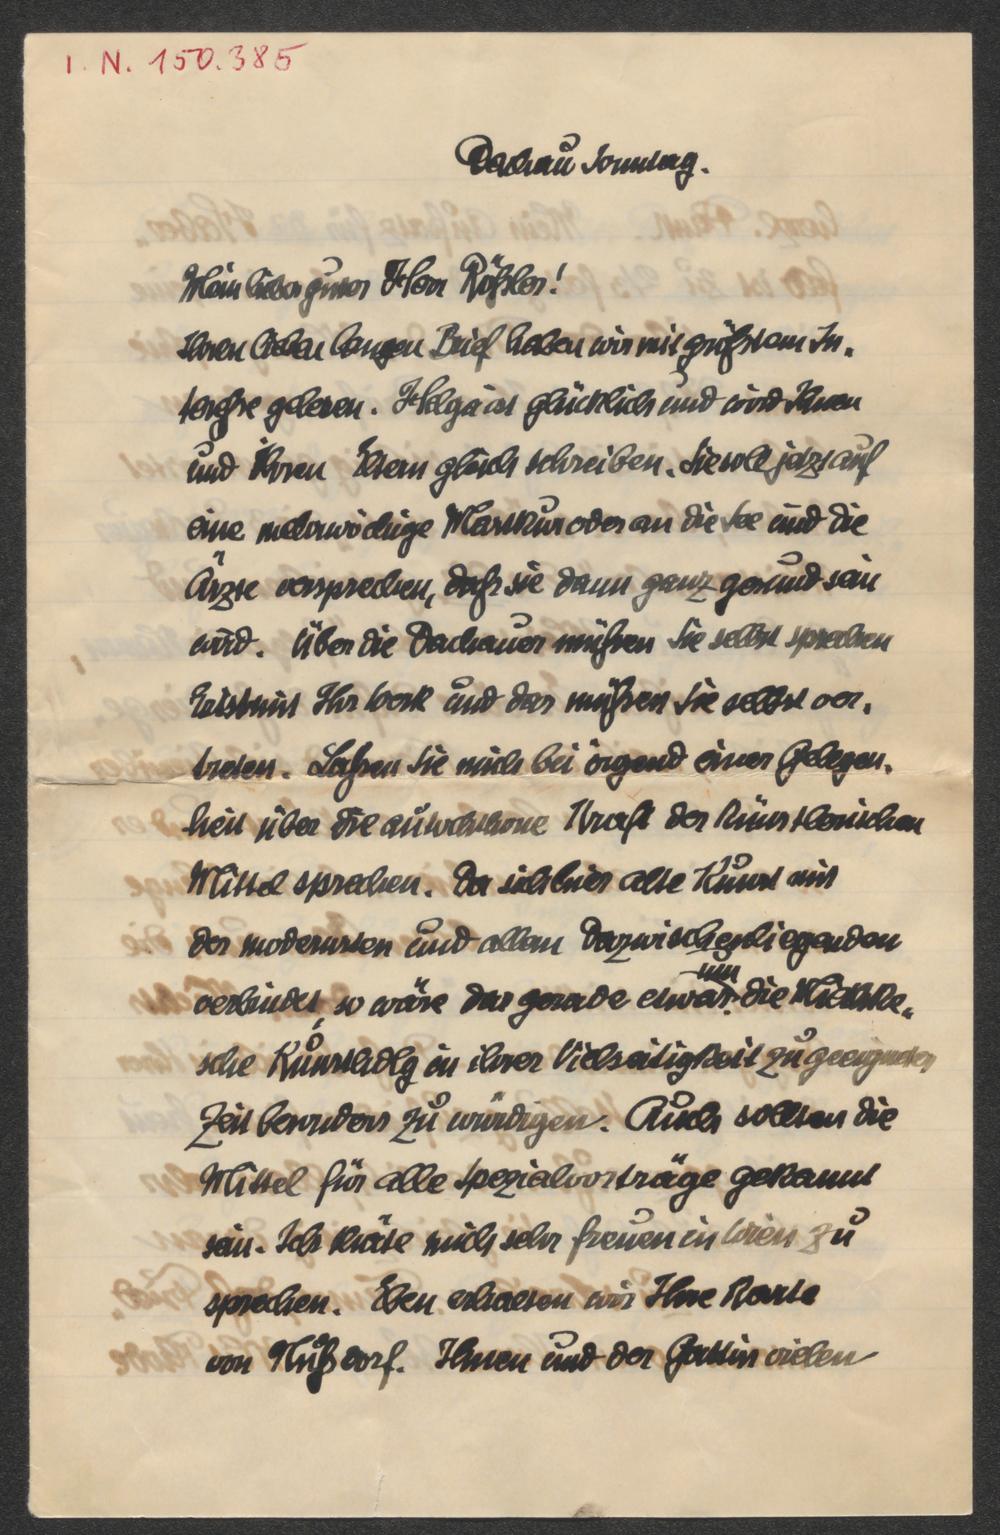 I. N. 150.385
Dachau Sonntag.
Mein lieber guter Herr Rößler!
Ihren lieben langen Brief haben wir mit größtem In-
teresse gelesen. Helga ist glücklich und wird Ihnen
und Ihren Eltern gleich schreiben. Sie soll jetzt auf
eine mehrwöchige Mastkur oder an die See und die
Ärzte versprechen, daß sie dann ganz gesund sein
wird. Über die Dachauer müßen Sie selbst sprechen
Es ist mit Ihr Werk und das müßen Sie selbst ver-
treten. Laßen Sie mich bei irgend einer Gelegen-
heit über die Kraft der künstlerischen
Mittel sprechen. Da sich hier alte Kunst mit
der modernsten und allem dazwischenliegenden
verbindet, so wäre das gerade etwas um die
sche in ihrer Vielseitigkeit zu geeigneter
Zeit besonders zu würdigen. Auch sollten die
Mittel für alle Spezialvorträge gekannt
sein. Ich thäte mich sehr freuen in Wien zu
sprechen. Eben erhalten wir Ihre Karte
von Nußdorf. Ihnen und der Gattin vielen